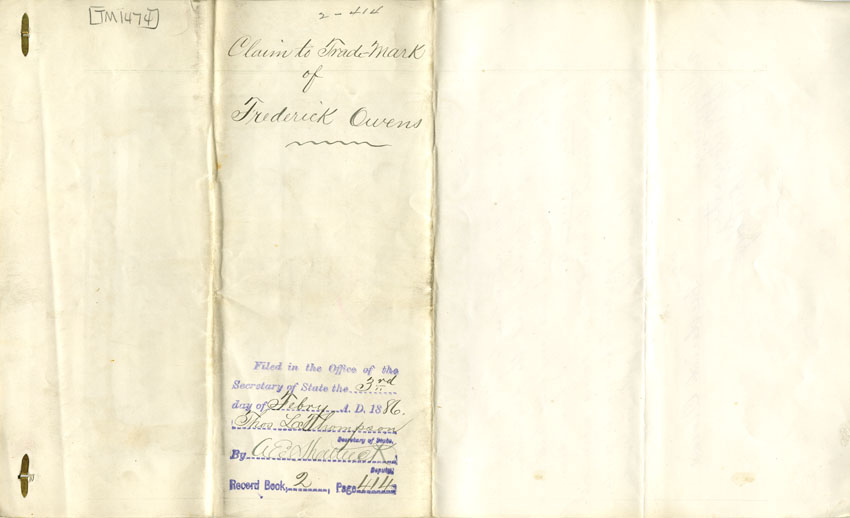 [TM1474]
2-414
Claim to Trade-Mark
of
Frederick Owens
Filed in the Office of the
Secretary of State the 3rd
day of Febry A. D. 1886.
Thos. L. Thompson
Secretary of State.
By
Deputy.
Record Book, 2, Page 414